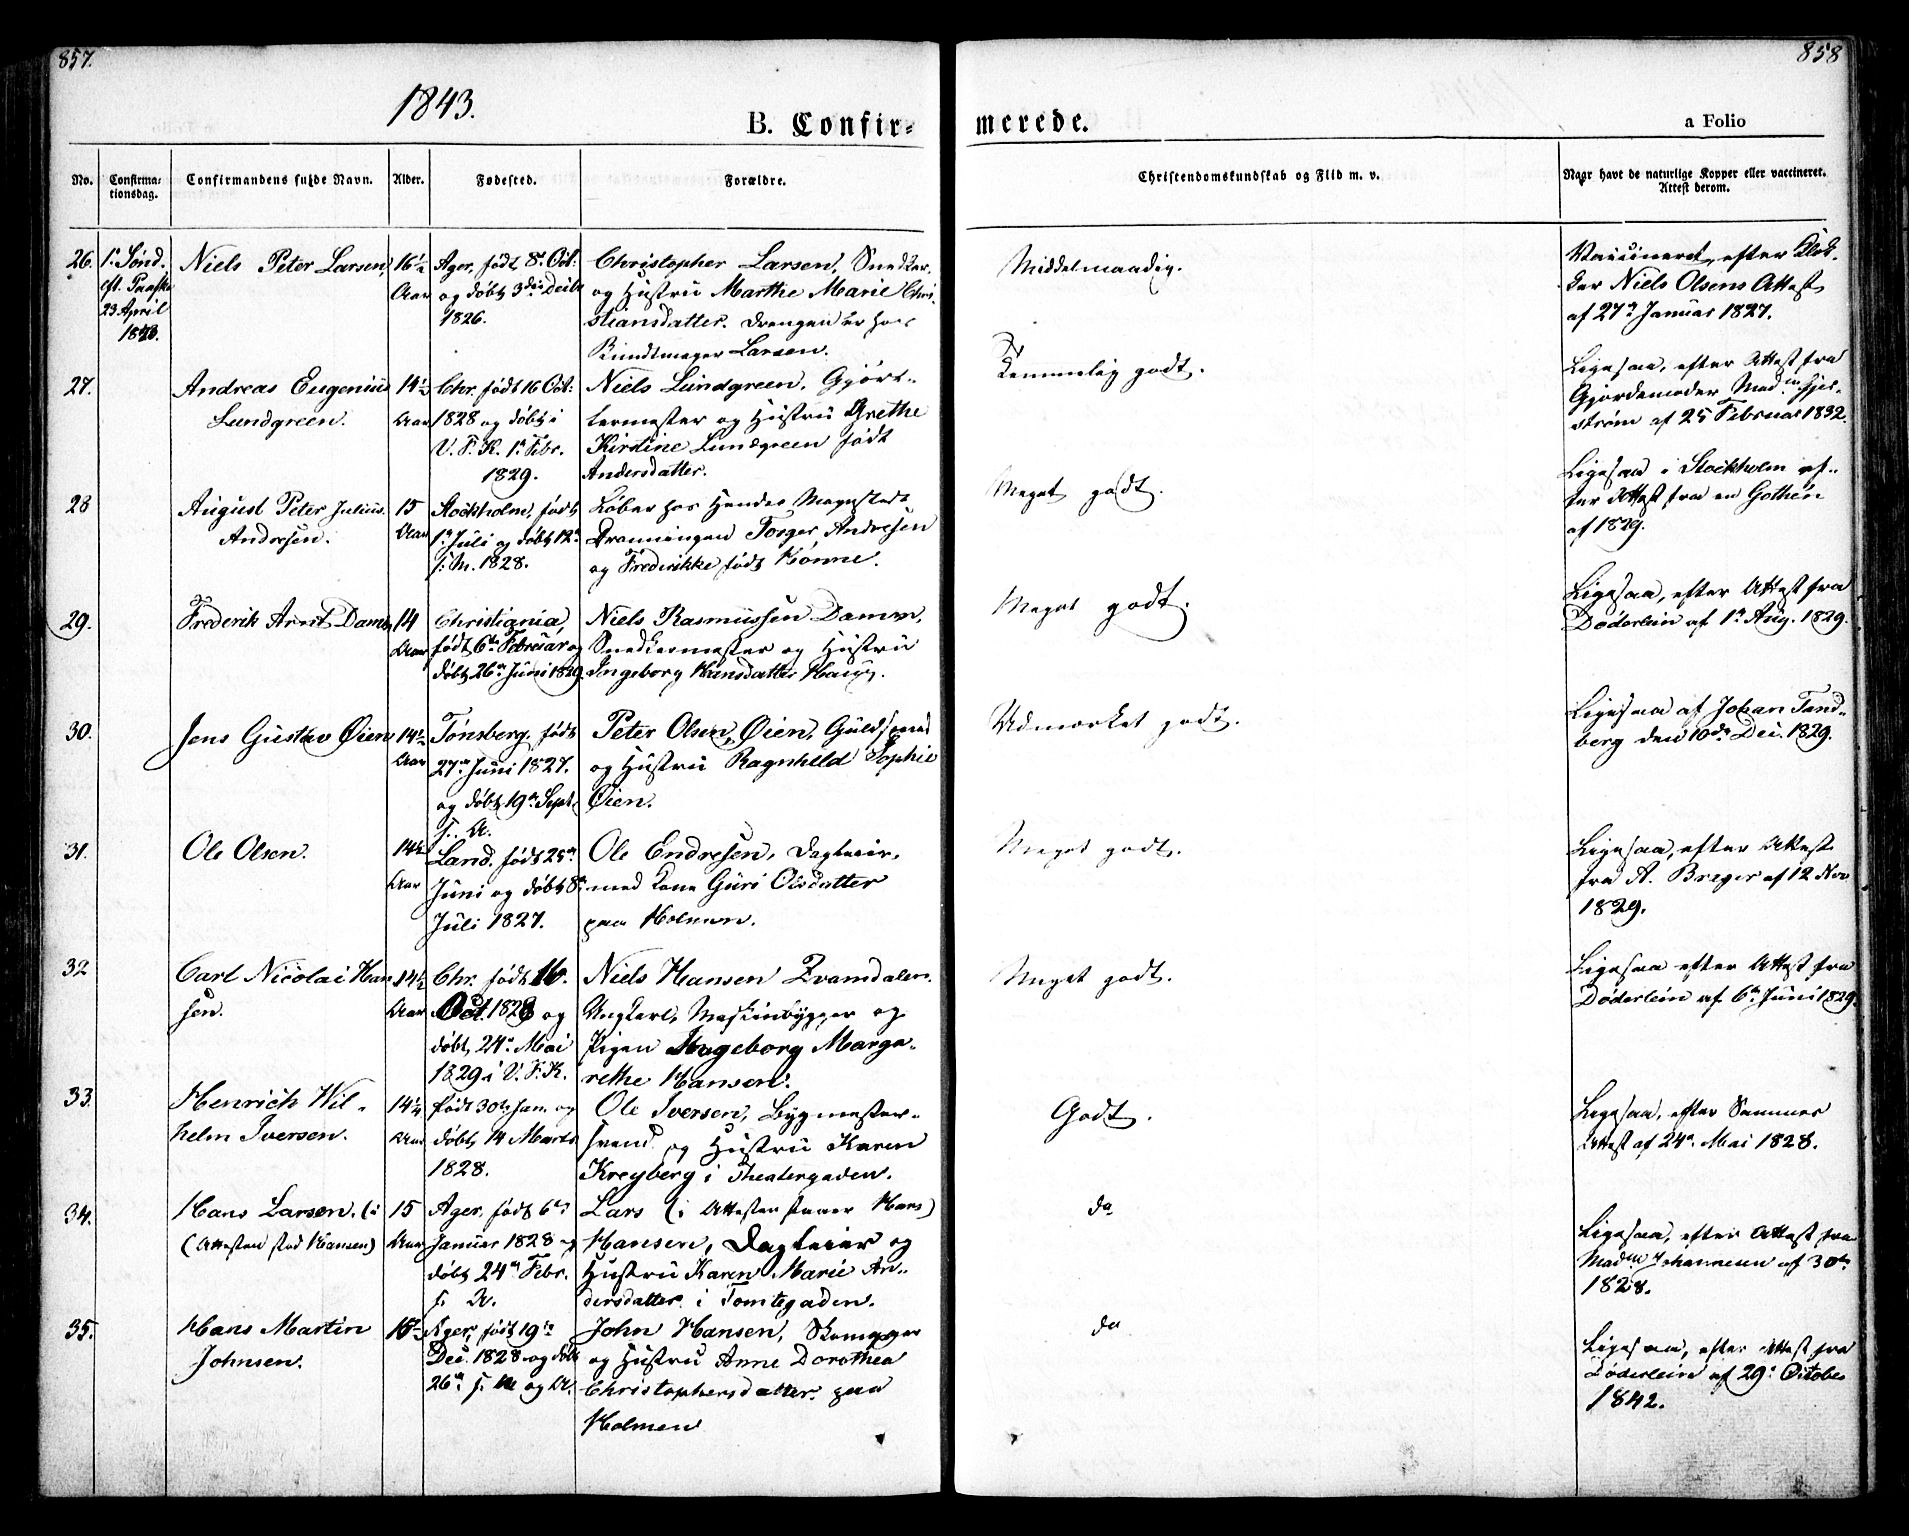 857.
1843.
B. Confir-
No.
Confirma-
tionsdag.
Confirmandens fulde Navn.
Alder.
Fødested.
Forældre.
26.
1ste Sønd.
eft. Paaske
23 April
1843.
Niels Peter Larsen
16½
Aar
Ager, født 8de Oct:
og døbt 3die Decbr
1826.
Christopher Larsen, Snedker,
og Hustru Marthe Marie Chri-
stiansdatter. Drengen er hos
Bundtmager Larsen.
27.
Andreas Eugenius
Lundgreen.
14½
Aar
Chr. født 16 Oct:
1828 og døbt i
V. F. K. 1ste Febr.
1829.
Niels Lundgreen, Gjørt-
lermester og Hustru Grethe
Kirstine Lundgreen født
Andersdatter.
28
August Peter Julius
Andresen.
15
Aar
Stockholm, født
1ste Juli og døbt 12te
s. M. 1828.
Løber hos Hendes Majestæt
Dronningen Torger Andresen
og Frederikke født Rönne.
29.
Frederik Arnt Damm
14
Aar
Christiania,
født 6te Februar og
døbt 26de Juni 1829
Niels Rasmussen Damm,
Snedkermester og Hustru
Ingeborg Hansdatter Haug.
30.
Jens Gustav Øien
14½
Aar
Tønsberg, født
27de Juni 1827.
og døbt 19de Sept
s. A.
Peter Olsen Øien, Guldsmed
og Hustru Ragnhild Sophie
Øien.
31.
Ole Olsen.
14¾
Aar
Land, født 25de
Juni og døbt 8de
Juli 1827.
Ole Endresen, Dagleier,
med Kone Guri Olsdatter
paa Holmen.
32
Carl Nicolai Han
sen.
14½
Aar
Chr. født 16.
Oct. 1828 og
døbt 24de Mai
1829 i V. F. K.
Niels Hansen Tvamdalen.
Ungkarl, Maskinbygger og
Pigen Ingeborg Marga-
rethe Hansen.
33.
Henrich Wil-
helm Iversen.
14¼
Aar
født 30te Jan. og
døbt 14 Marts
1828.
Ole Iversen, Bygmester-
svend og Hustru Karen
Kreyberg i Theatergaden.
34.
Hans Larsen. (i
(Attesten stod Hansen)
15
Aar
Ager, født 6te
Januar 1828 og
døbt 24de Febr.
s. A.
Lars (i Attesten staaer Hans)
Hansen, Dagleier og
Hustru Karen Marie An-
dersdatter i Tomtegaden.
35.
Hans Martin
Johnsen.
Ager, født 19de
Dec. 1828 og døbt
26de s. M og A.
John Hansen,
og Hustru Anne Dorothea
Christophersdatter paa
Holmen
858
merede.
a Folio
Christendomskundskab og Flid m. v.
Naar havt de naturlige Kopper eller vaccineret.
Attest derom.
Middelmaadig.
Vaccineret, efter Klok-
ker Niels Olsens Attest
af 27de Januar 1827.
Temmelig godt.
Ligesaa, efter Attest fra
Gjordemoder Madm. Hjel-
strøm af 25 Februar 1832.
Meget godt.
Ligesaa i Stockholm ef-
ter Attest fra en Gothen
af 1829.
Meget godt.
Ligesaa, efter Attest fra
Døderlein af 1ste Aug. 1829.
Udmærket godt.
Ligesaa af Johan Tand-
berg den 10de Dec. 1829.
Meget godt.
Ligesaa, efter Attest
fra A. Breger af 12 Nov
1829.
Meget godt.
Ligesaa efter Attest fra
Døderlein af 6te Juni 1829.
Godt.
Ligesaa, efter Sammes
Attest af 24de Mai 1828.
do
Ligesaa, efter Attest fra
Madm Johannesen af 30te
1828.
do
Ligesaa, efter Attest fra
Døderlein af 29de October
1842.